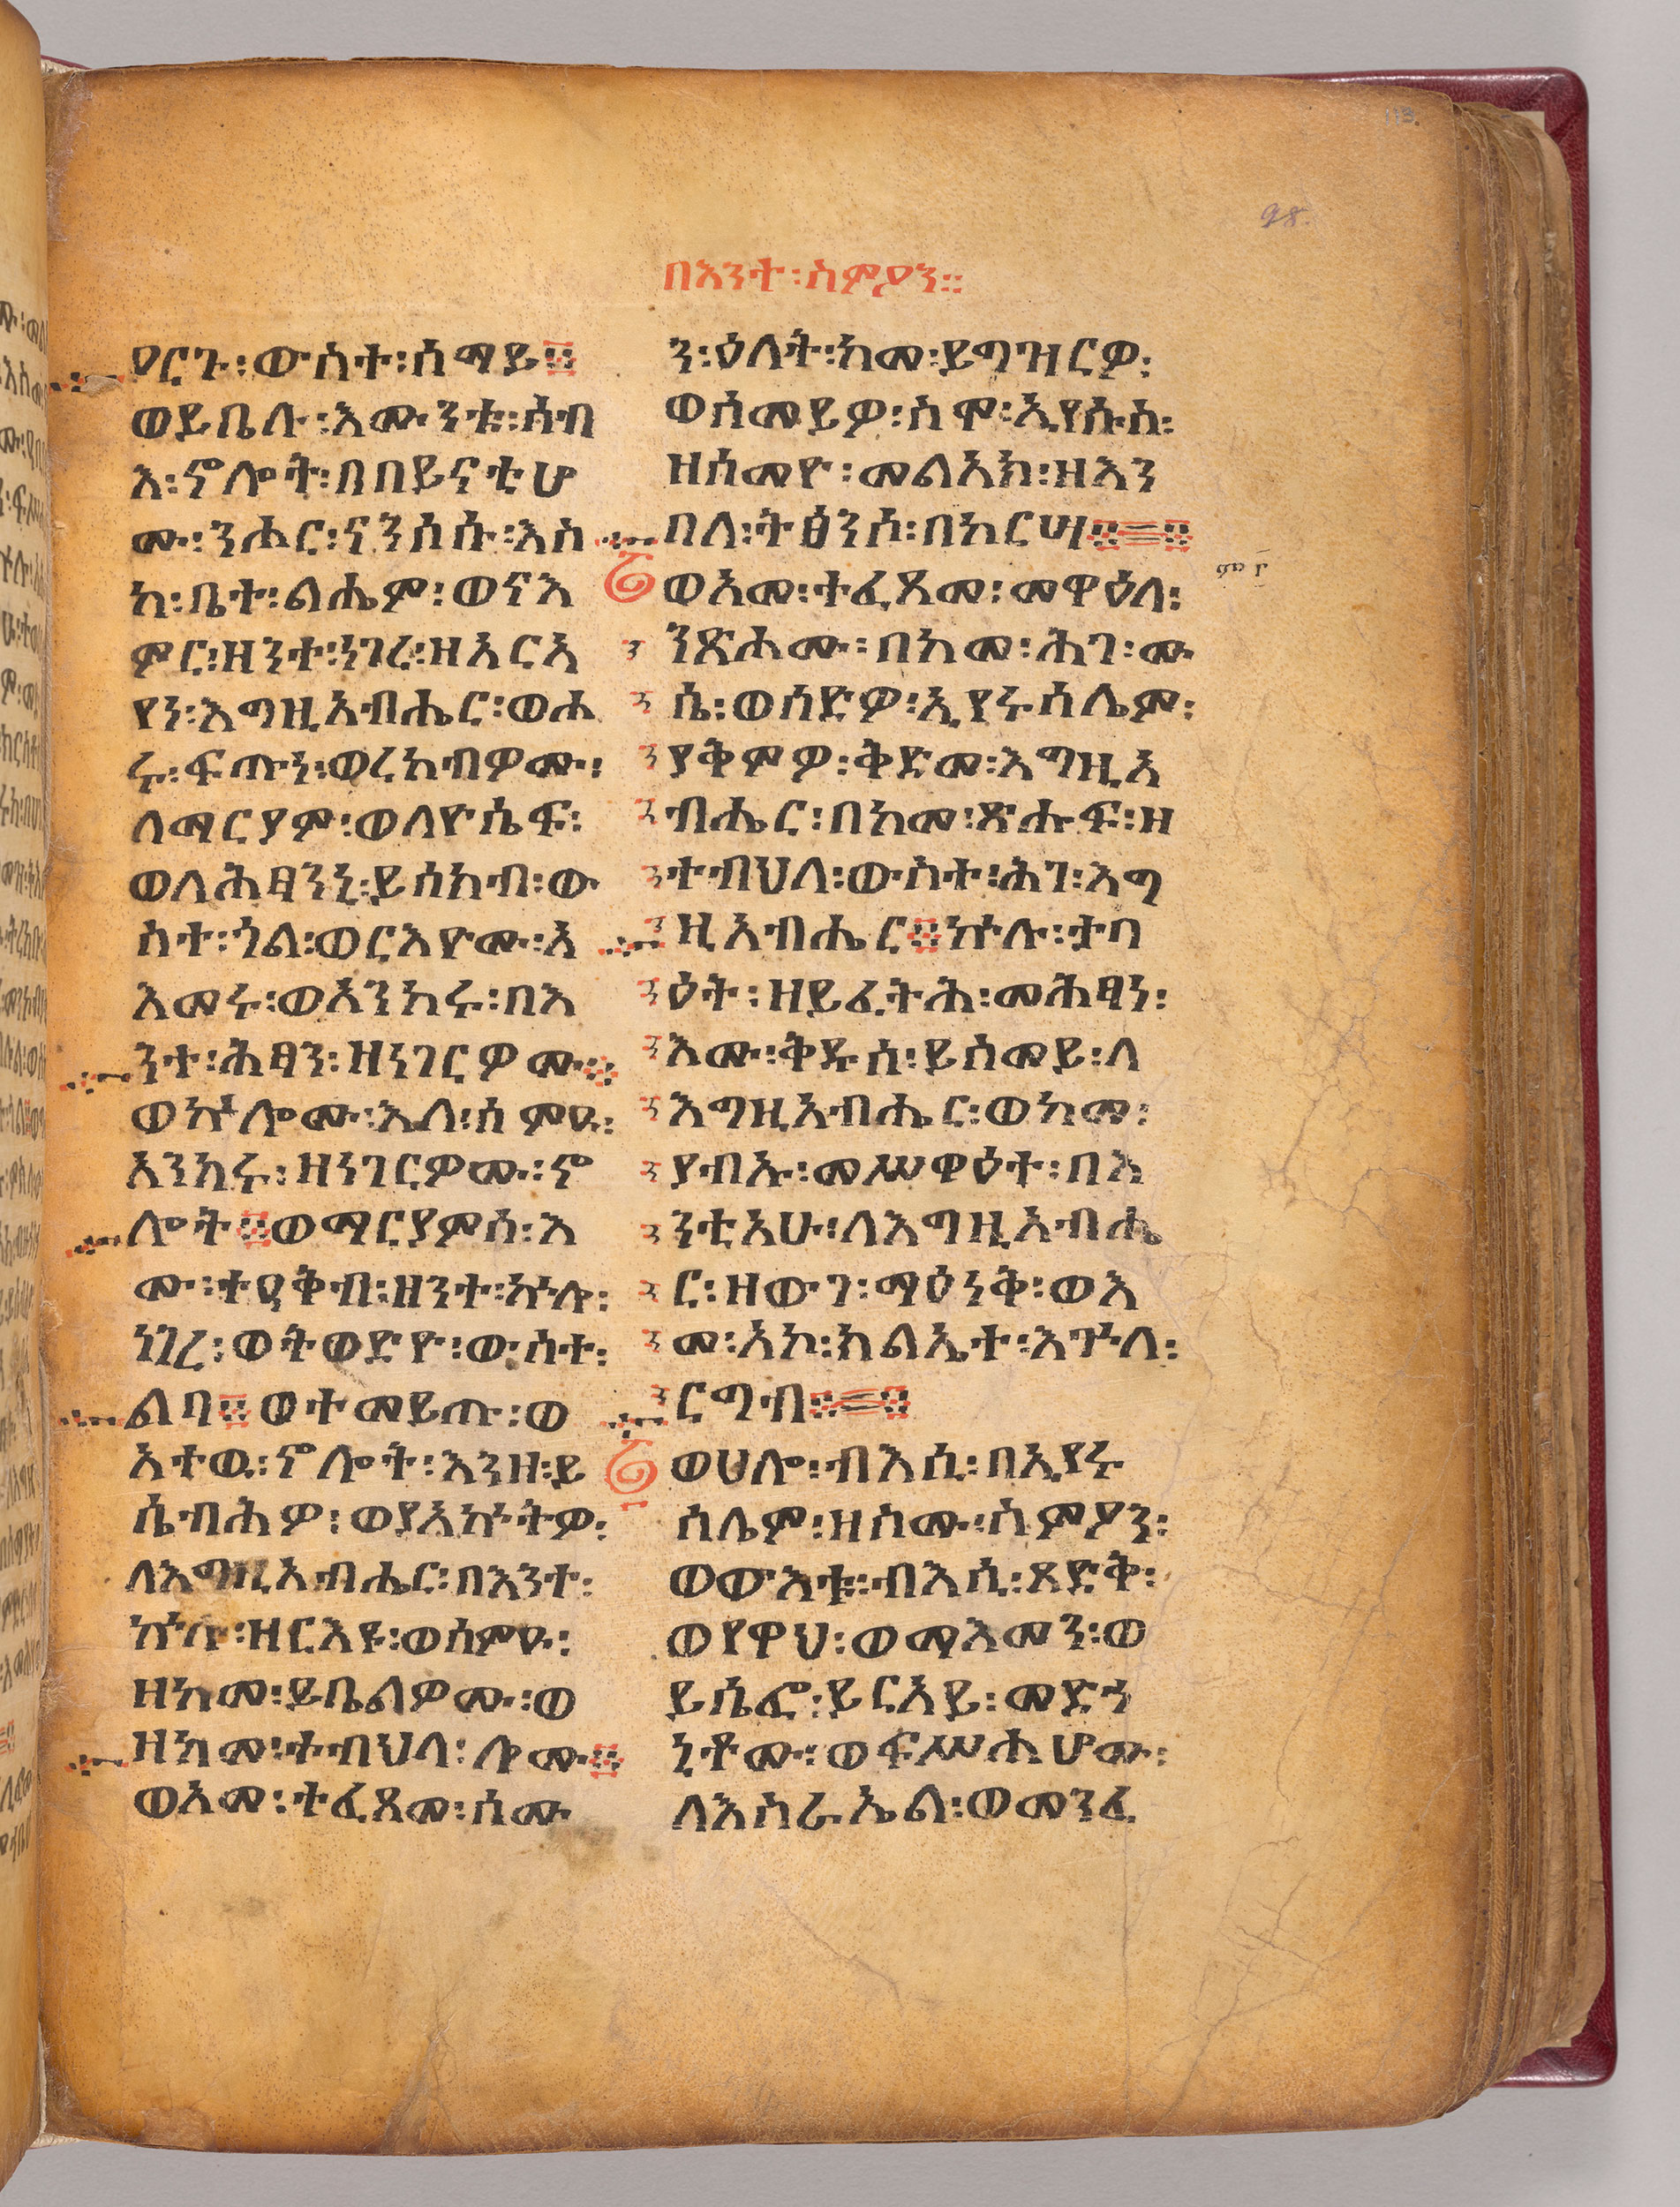 በእንተ፡ስምዖን።
ዐርጉ፡ውስተ፡ሰማይ፨
ወይቤሉ፡እሙንቱ፡ሰብ
እ፡ኖሎት፡በበይናቲሆ
ሙ፡ንሑር፡ናንሰሱ፡እስ
ከ፡ቤተ፡ልሔም፡ወናእ
ምር፡ዘንተ፡ነገረ፡ዘአርአ
የነ፡እግዚአብሔር፡ወሖ
ሩ፡ፍጡነ፡ወረከብዎሙ፡
ለማርያም፡ወለዮሴፍ፡
ወለሕፃንኒ፡ይሰከብ፡ው
ስተ፡ጎል፡ወርእዮሙ፡አ
እመሩ፡ወአንከሩ፡በእ
ንተ፡ሕፃን፡ዘነገርዎሙ፨
ወኵሎሙ፡እለ፡ሰምዑ፡
አንከሩ፡ዘነገርዎሙ፡ኖ
ሎት፨ወማርያምሰ፡እ
ሙ፡ተዐቅብ፡ዘንተ፡ኵሉ፡
ነገረ፡ወትወድዮ፡ውስተ፡
ልባ፨ወተመይጡ፡ወ
አተዉ፡ኖሎት፡እንዘ፡ይ
ሴብሕዎ፡ወያአኵትዎ፡
ለእግዚአብሔር፡በእንተ፡
ኵሉ፡ዘርእዩ፡ወሰምዑ፡
ዘከመ፡ይቤልዎሙ፡ወ
ዘከመ፡ተብህለ፡ሎሙ፨
ወአመ፡ተፈጸመ፡ሰሙ
ን፡ዕለት፡ከመ፡ይግዝርዎ፡
ወሰመይዎ፡ስሞ፡ኢየሱስ፡
ዘሰመዮ፡መልአክ፡ዘእን
በለ፡ትፅንሶ፡በከርሣ፨=፨
ወአመ፡ተፈጸመ፡መዋዕለ፡
ንጽሖሙ፡በከመ፡ሕገ፡ሙ
ሴ፡ወሰድዎ፡ኢየሩሳሌም፡
ያቅምዎ፡ቅድመ፡እግዚአ
ብሔር፡በከመ፡ጽሑፍ፡ዘ
ተብህለ፡ውስተ፡ሕገ፡እግ
ዚአብሔር፨ኵሉ፡ተባ
ዕት፡ዘይፈትሕ፡መሕፃነ፡
እሙ፡ቅዱሰ፡ይሰመይ፡ለ
እግዚአብሔር፡ወከመ፡
ያብኡ፡መሥዋዕተ፡በእ
ንቲአሁ፡ለእግዚአብሔ
ር፡ዘውገ፡ማዕነቅ፡ወእ
መ፡አኮ፡ክልኤተ፡እጕለ፡
ርግብ፨=፨
ወሀሎ፡ብእሲ፡በኢየሩ
ሳሌም፡ዘስሙ፡ስምዖን፡
ወውእቱ፡ብእሲ፡ጻድቅ፡
ወየዋህ፡ወማእመን፡ወ
ይሴፎ፡ይርአይ፡መድኀ
ኒቶሙ፡ወፍሥሐሆሙ፡
ለእስራኤል፡ወመንፈ
98.
113.